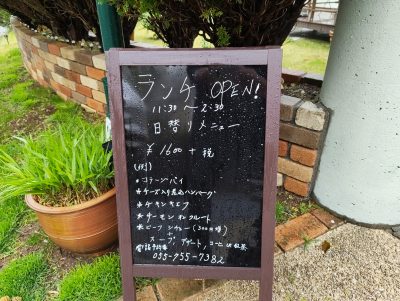 ランチ OPEN!
11:30〜2:30
日替りメニュー
¥1600+税
(例)
・コテージパイ
・チーズ入り煮込ハンバーグ
・チキンキエフ
・サーモンオンクルート
・ビーフシチュー(300円増)
+
スープ、デザート、コーヒーor紅茶
055-755-7382